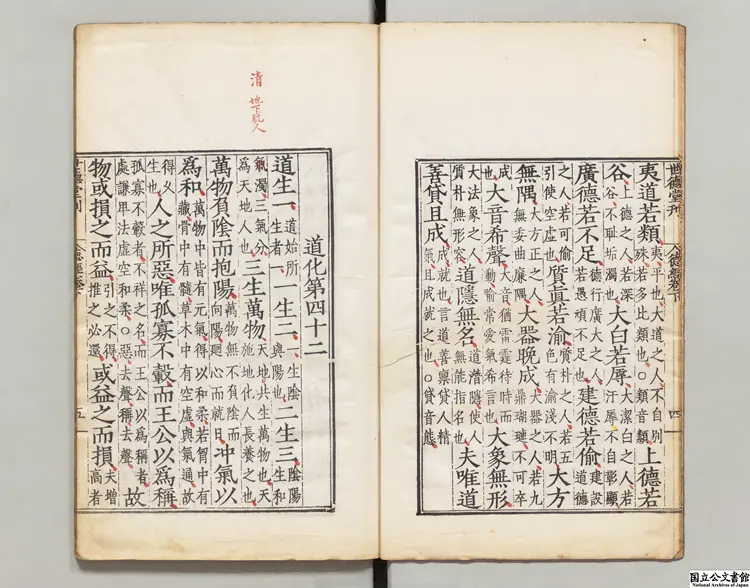 世德堂刊 德經卷下 四
夷道若纇夷平也大道之人不自別殊若多比類也○纇音類上德若
谷上德之人若深谷不耻垢濁也大白若辱大潔白之人若汙辱不自彰顯
廣德若不足德行廣大之人若愚頑不足也建德若偷建設道德
之人若可偷引使空虛也質真若渝質朴之人若五色有渝淺不明大方
無隅大方正之人無委曲廉隅大器晚成大器之人若九鼎瑚璉不可卒
成也大音希聲大音猶雷霆待時而動喻常愛氣希言也大象無形
大法象之人質朴無形容道隱無名道潛隱使人無能指名也夫唯道
善貸且成成就也言道善稟貸人精氣且成就之也○貸音態
清
地下脫人
道化第四十二
道生一道始所生者一生二一生陰與陽也二生三陰陽生和
氣濁三氣分為天地人也三生萬物天地共生萬物也天施地化人長養之也
萬物負陰而抱陽萬物無不負陰而向陽迴心而就日冲氣以
為和萬物中皆有元氣得以和柔若胷中有藏骨中有髓草木中有空虛與氣通故
得久生也人之所惡唯孤寡不轂而王公以為稱
孤寡不轂者不祥之名而王公以為稱者處謙卑法虛空和柔○惡去聲稱去聲故
物或損之而益引之不得推之必還或益之而損夫增高者
世德堂刊 德經卷下 五
国立公文書館
National Archives of Japan